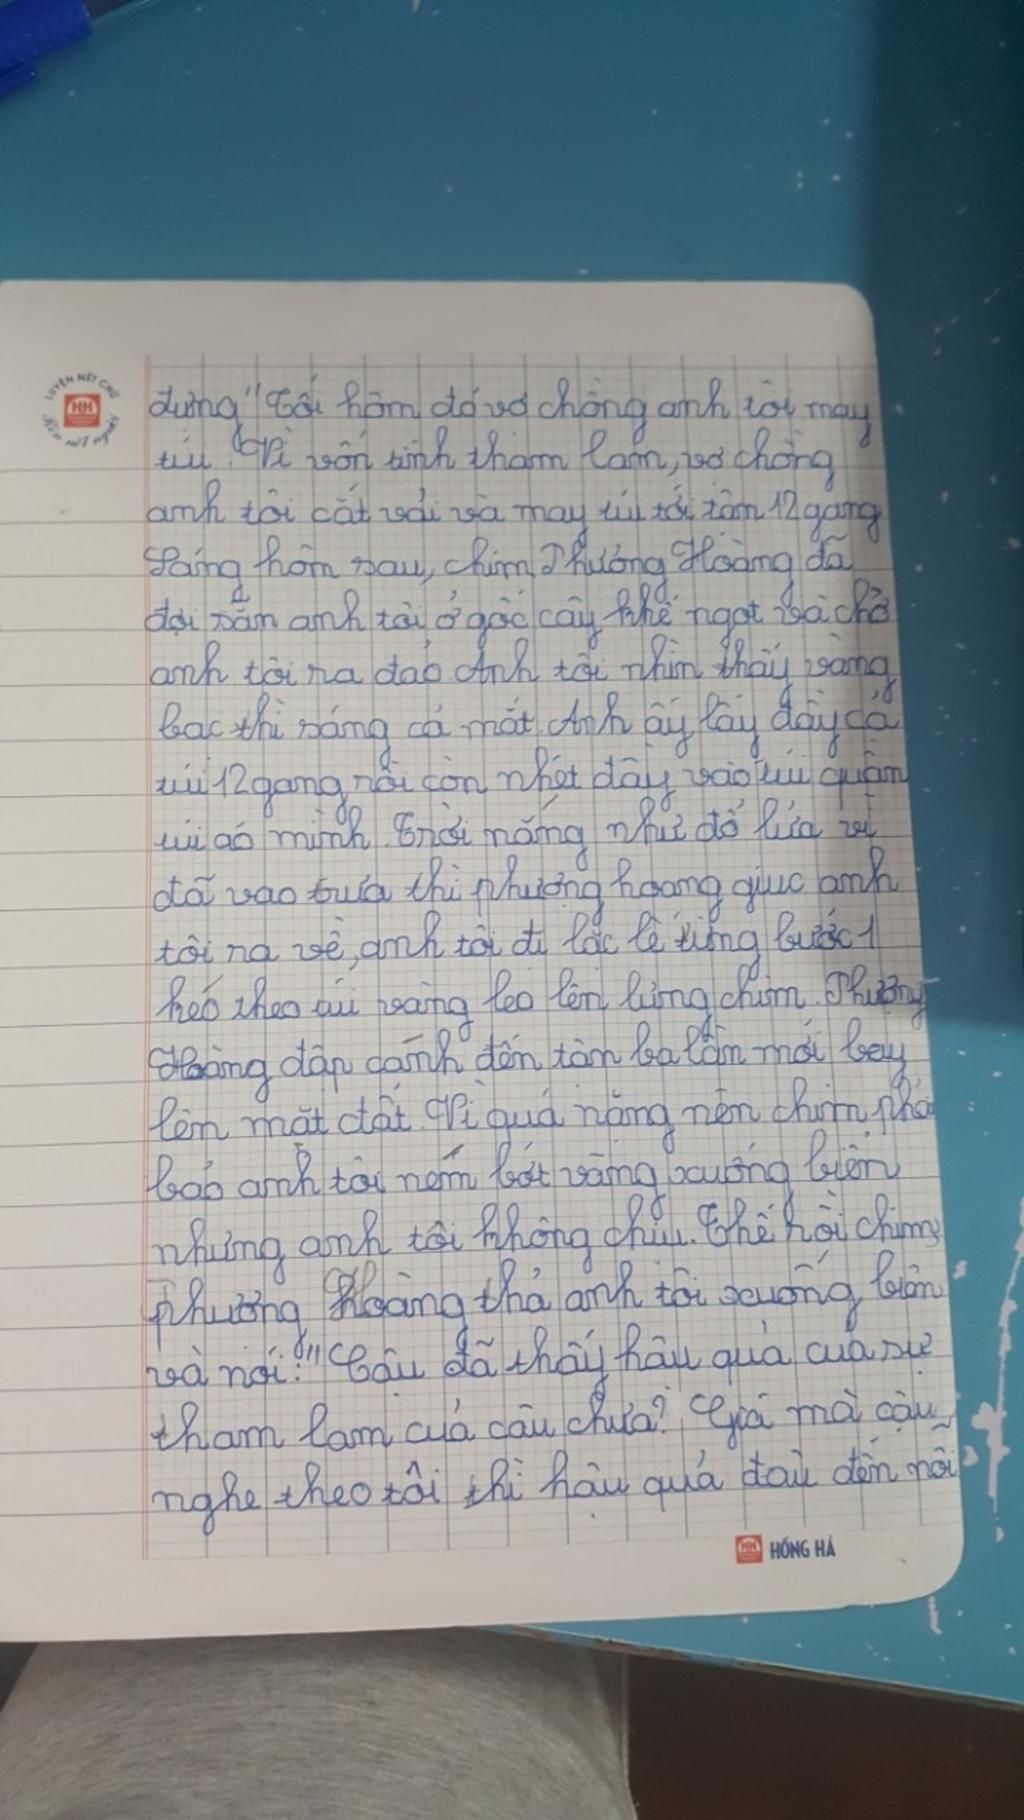 LUYỆN NÉT CHỮ
HH
rèn nết người
đựng" Tối hôm đó vợ chồng anh tôi may
túi. Vì vốn tính tham lam, vợ chồng
anh tôi cắt vải và may túi tới tâm 12 gang
Sáng hôm sau, chim Phượng Hoàng đã
đợi sẵn anh tôi ở gốc cây khế ngọt và chở
anh tôi ra đảo. Anh tôi nhìn thấy vàng
bạc thì sáng cả mắt. Anh ấy lấy đầy cả
túi 12 gang rồi còn nhét đầy vào túi quần
túi áo mình. Trời nắng như đổ lửa vì
đã vào trưa thì phượng hoang giục anh
tôi ra về, anh tôi đi lắc lê từng bước 1
kéo theo túi vàng leo lên lưng chim. Phượng
Hoàng đập cánh đến tàm ba lần mới bay
lên mặt đất. Vì quá nặng nên chim phả
bảo anh tôi ném bớt vàng xuống biển
nhưng anh tôi không chịu. Thế hồi chim
phượng Hoàng thả anh tôi xuống biển
và nói:" Cậu đã thấy hậu quả của sự
tham lam của cậu chưa? Giá mà cậu
nghe theo tôi thì hậu quả đau đến nỗi
HH HỒNG HÀ